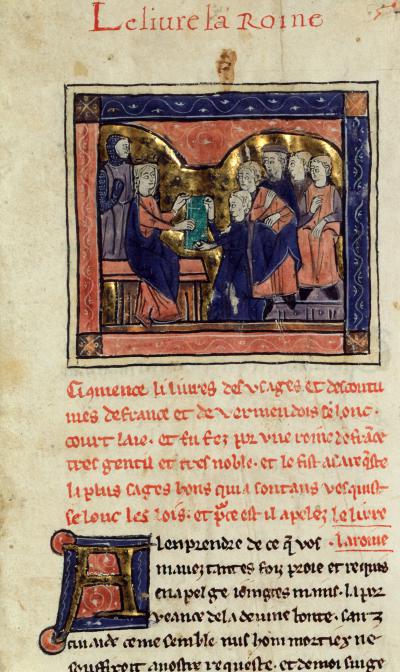 Le liure la Roine
Ci q̄mence li liures des vsages et des coustu
mes de france et de vermendois se lonc.
court laie. et fu fez por vne roine de frāce
tres gentil et tres noble. et le fist a sa req̄ste
li plus sages hons qui a son tans vesquist
se lonc les lois. et p̄ce est il apelez le liure
la roine
A lenprendre de ce q̄ vos
mauez tantes foiz proie et requis
en apel ge loinges mains. la por
veance de la deuine bonte. sanz
cui aide ce me semble nus hom mortiex ne
seuffiroit a uostre requeste. et de moi suige